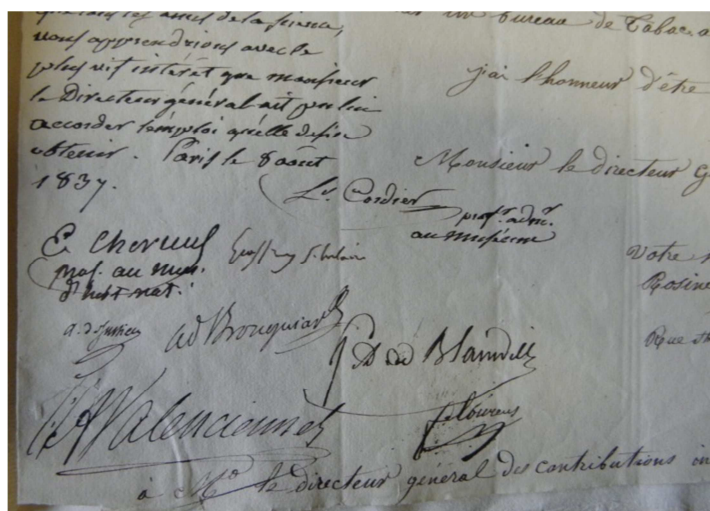 nous apprendrions avec le
plus vif intérêt que monsieur
le Directeur général ait pu lui
accorder l'emploi qu'elle désire
obtenir. Paris le 8 août
1837.
Ls. Cordier
profr. admr.
au muséum
E. Chevreul
prof. au mus.
d'hist. nat.
Geoffroy St. hilaire
a. de Jussieu
ad Brongniart
H. D. de Blainville
Valenciennes
flourens
un bureau de Tabac a
j'ai l'honneur d'être
Monsieur le directeur G
Votre
Rosine
Rue
à Mr le directeur général des contributions in